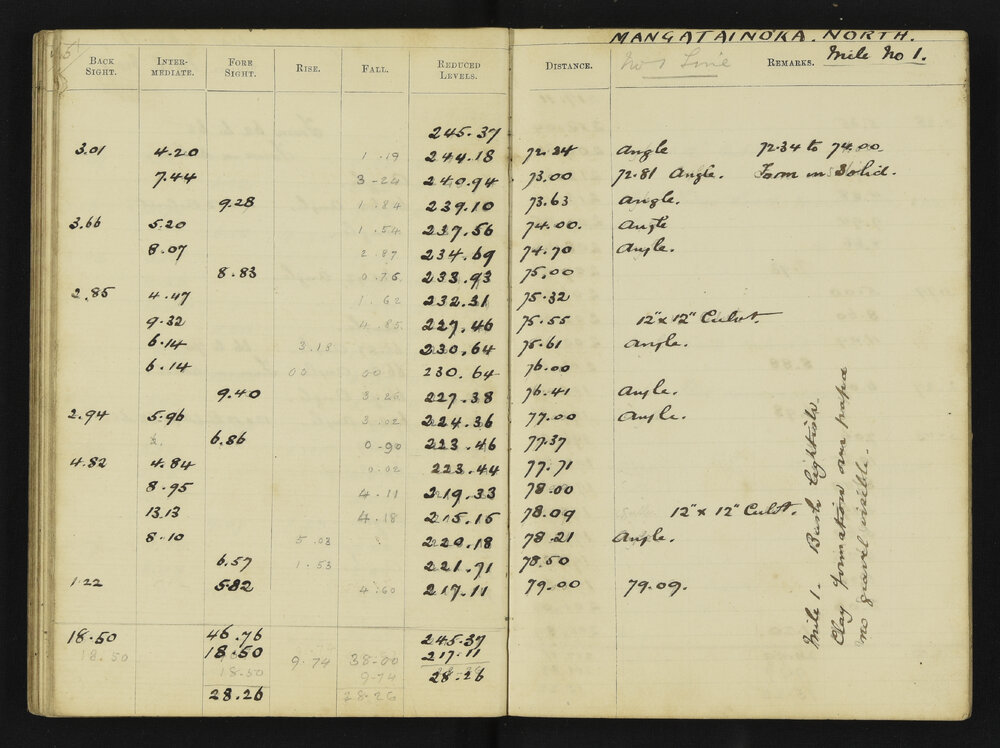 MANGATAINOKA. NORTH.
BACK SIGHT. INTER-MEDIATE. FORE SIGHT. RISE. FALL. REDUCED LEVELS. DISTANCE. No 1 Line REMARKS. Mile No 1.
245.37
3.01 4.20 1.19 244.18 72.34 Angle 72.34 to 74.00
7.44 3-24 240.94 73.00 72.81 Angle. Form in Solid.
9.28 1.84 239.10 73.63 Angle.
3.66 5.20 1.54 237.56 74.00. Angle
8.07 2.87 234.69 74.70 Angle.
8.83 0.76 233.93 75.00
2.85 4.47 1.62 232.31 75.32
9.32 4.85 227.46 75.55 12"x 12" Culvt.
6.14 3.18 230.64 75.61 Angle.
6.14 00 00 230.64 76.00
9.40 3.26 227.38 76.41 Angle.
2.94 5.96 3.02 224.36 77.00 Angle.
6.86 0.90 223.46 77.37
4.82 4.84 0.02 223.44 77.71
8.95 4.11 219.33 78.00
13.13 4.18 215.15 78.09 12"x 12" Culvt.
8.10 5.03 220.18 78.21 Angle.
6.57 1.53 221.71 78.50
1.22 5.82 4.60 217.11 79.00 79.09.
18.50 46.76 245.37
18.50 18.50 9.74 38.00 217.11
18.50 9.74 28.26
28.26 28.26
Mile 1. Bush lightish.
Clay formation over papa
no gravel visible.